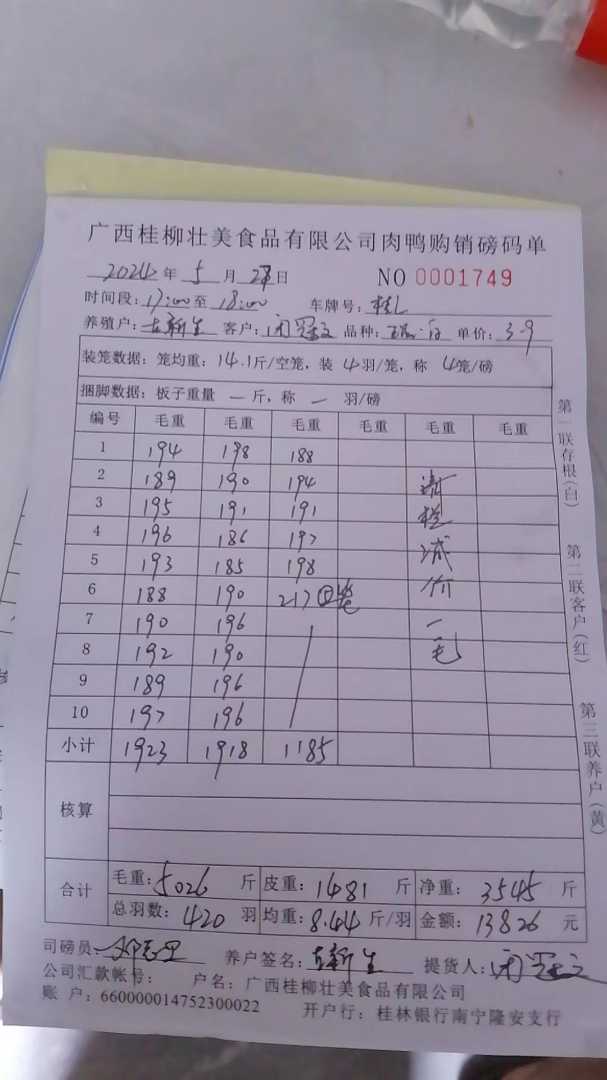 广西桂柳壮美食品有限公司肉鸭购销磅码单
2024年 5 月 27 日 NO 0001749
时间段: 17:00 至 18:00 车牌号: 桂
养殖户: 古新生 客户: 闭冠文 品种: 单价: 3.9
装笼数据: 笼均重: 14.1斤/空笼, 装 4 羽/笼, 称 4笼/磅
捆脚数据: 板子重量 一 斤, 称 一 羽/磅
编号 毛重 毛重 毛重 毛重 毛重 毛重
1 194 198 188
2 189 190 194
3 195 191 191
4 196 186 197
5 193 185 198
6 188 190 217 笼
7 190 196
8 192 190
9 189 196
10 197 196
减价一毛
小计 1923 1918 1185
核算
合计 毛重: 5026 斤 皮重: 1481 斤 净重: 3545 斤
总羽数: 420 羽 均重: 8.44 斤/羽 金额: 13826 元
司磅员: 养户签名: 古新生 提货人: 闭冠文
公司汇款帐号: 户名: 广西桂柳壮美食品有限公司
账 户: 660000014752300022 开户行: 桂林银行南宁隆安支行
第一联存根(白)
第二联客户(红)
第三联养户(黄)